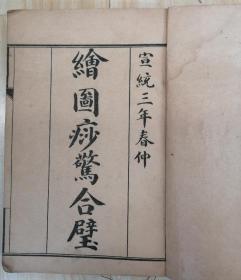 宣統三年春仲
繪圖痧驚合璧